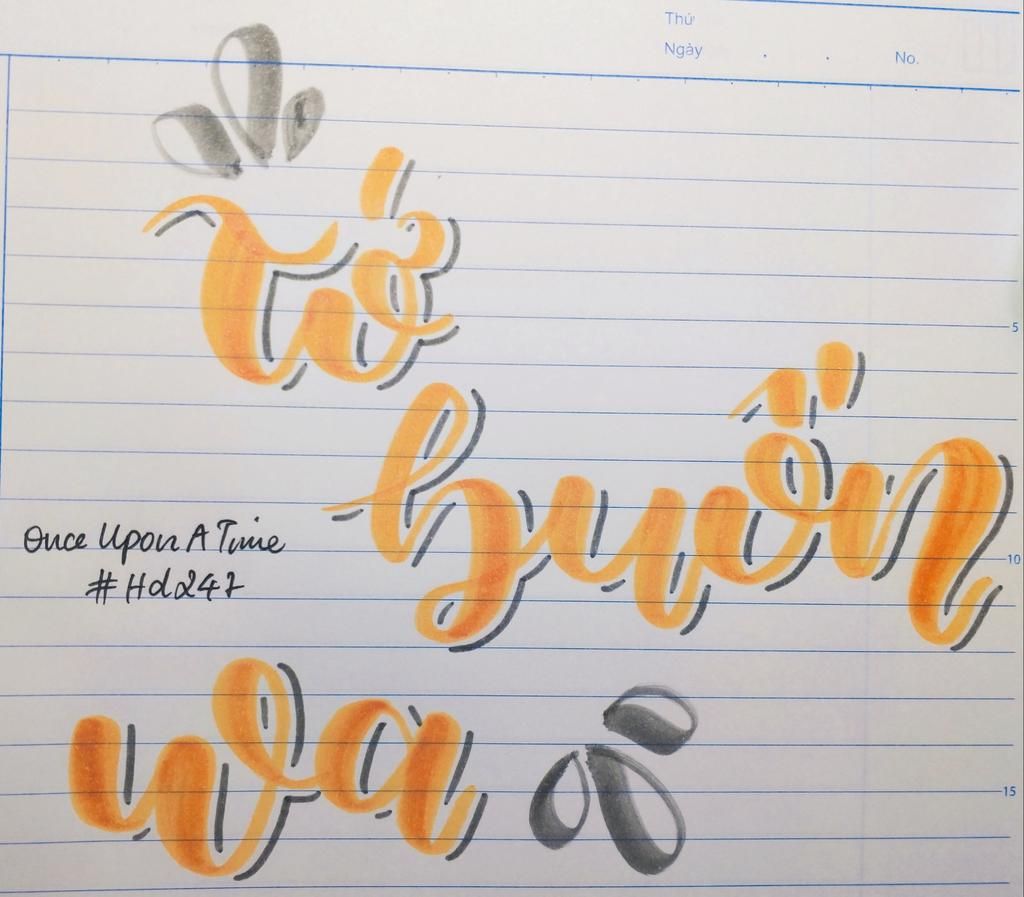 Thứ
Ngày . . No.
Tớ
5
buồn
Once Upon A Time
10
#Hd247
wa
15